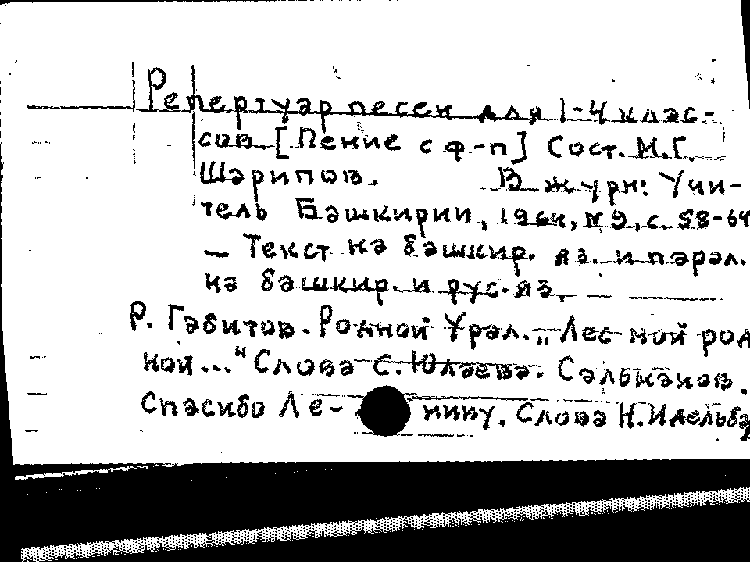 Репертуар песен для 1-4 клас-
сов. [Пение с ф-п] Сост. М.Г.
Шарипов. В журн: Учи-
тель Башкирии, 1964, №9, с. 58-64
— Текст на башкир. яз. и парал.
на башкир. и рус. яз.
Р. Габитов. Родной Урал. „Лес мой род
ной..." Слова С. Юлаева. Сальманов.
Спасибо Ле- нину. Слова Н. Идельба